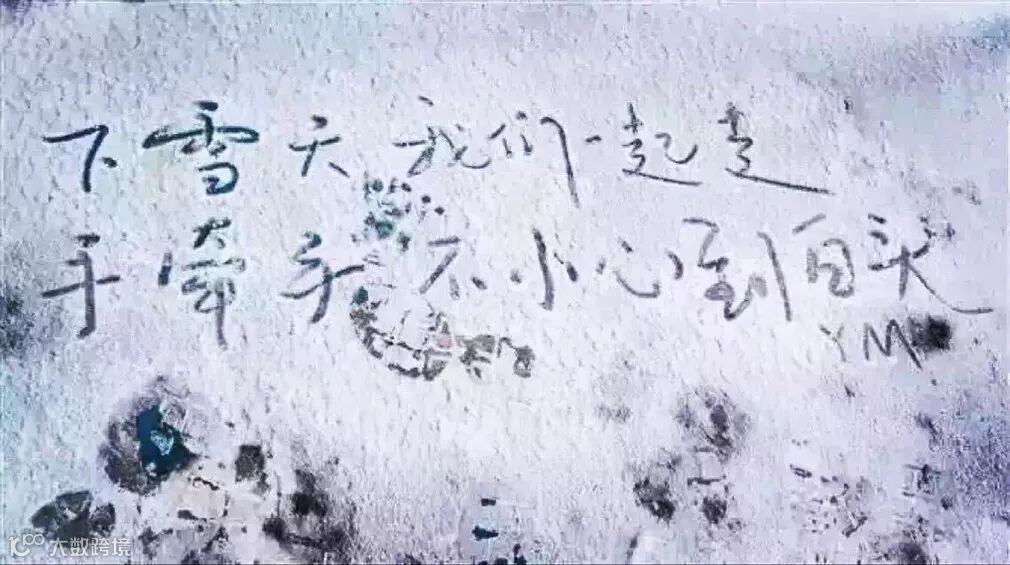 下雪天我们一起走
手牵手不小心到白头
YM
大数跨境